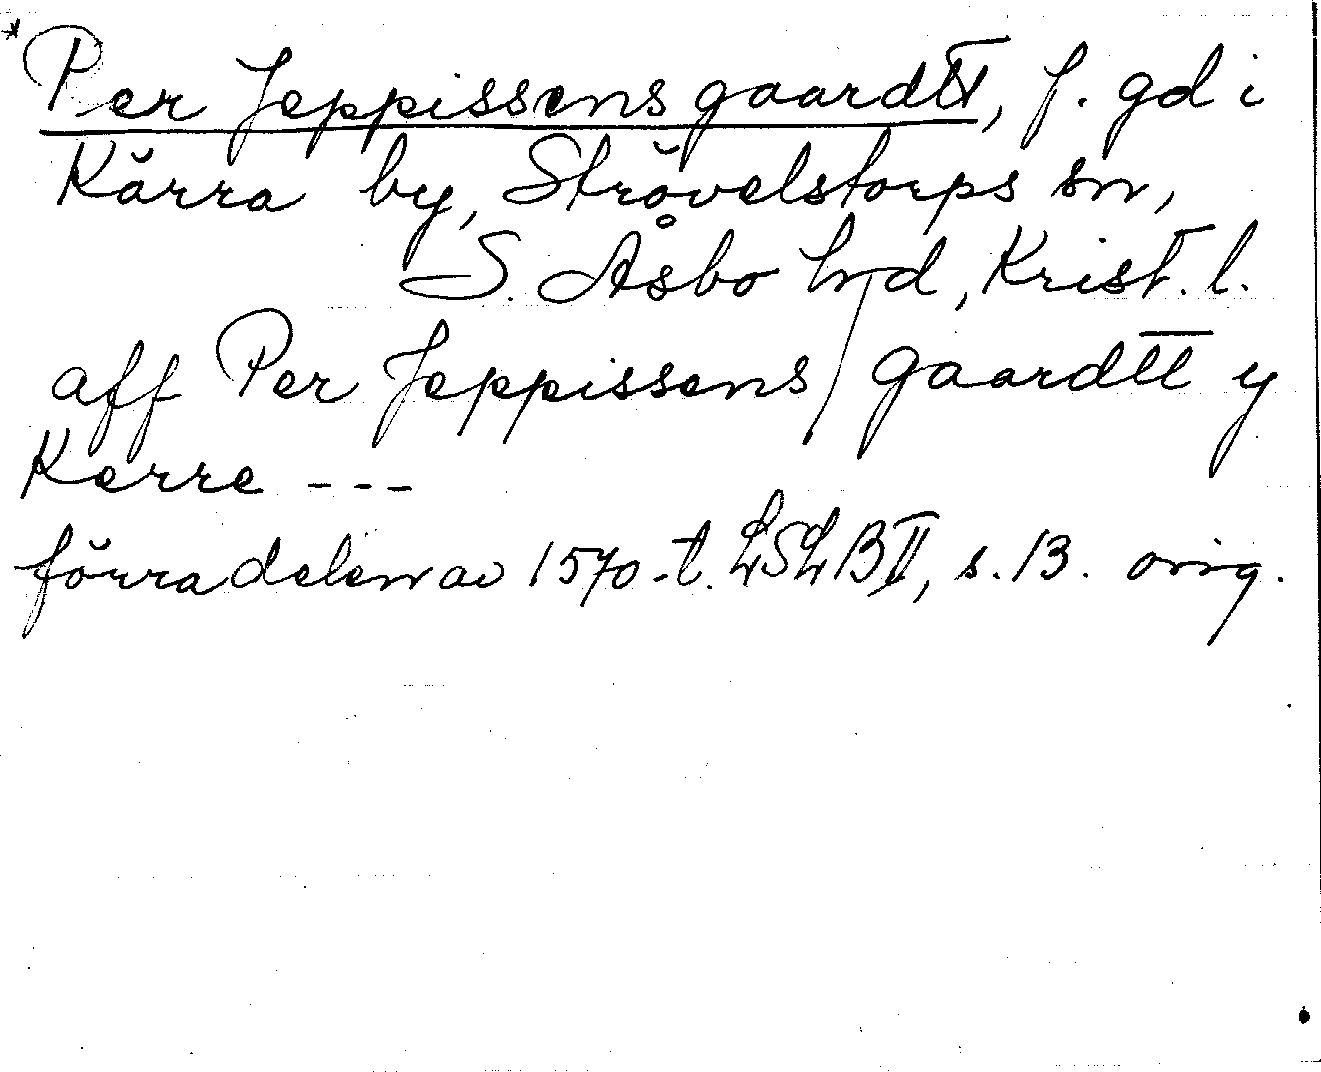 * Per Jeppissens gaardtt, f. gd i
Kärra by, Strövelstorps sn,
S. Åsbo hrd, Krist. l.
aff Per Jeppissens / gaardtt y
Kerre ---
förra delen av 1570-t. LSLB II, s. 13. orig.